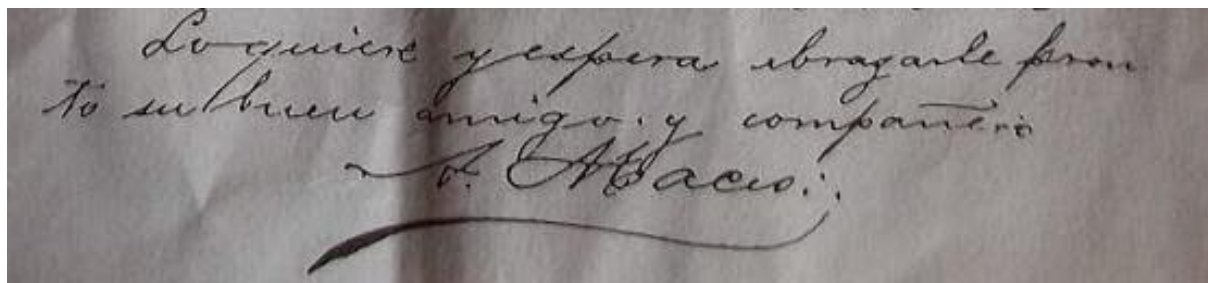 Lo quiere y espera abrazarle pron
to su buen amigo y compañero
A. Maceo